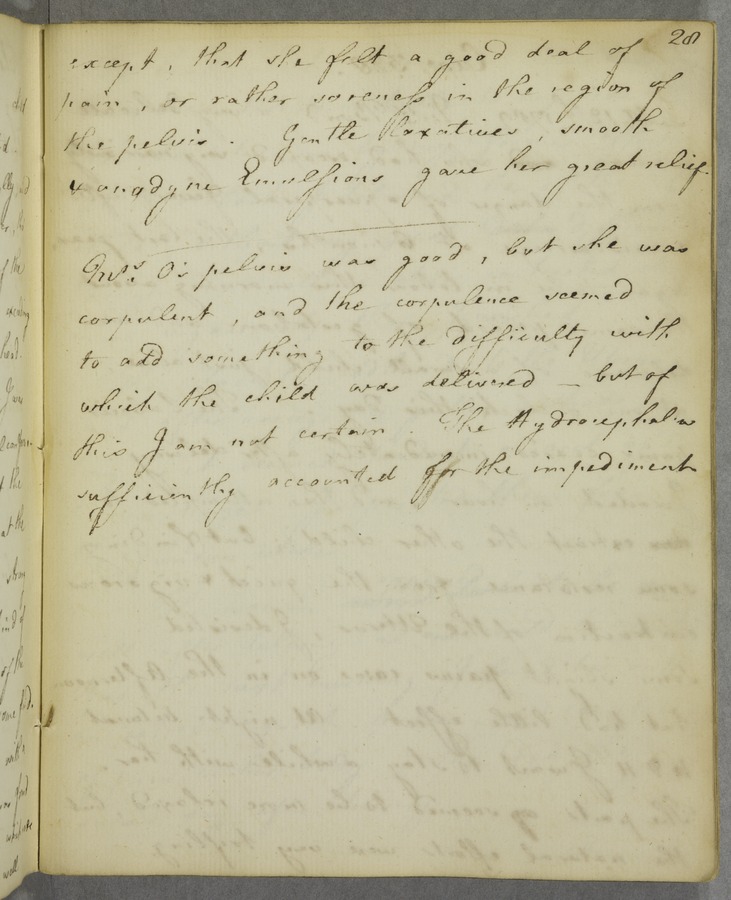 28
except, that she felt a good deal of
pain, or rather soreness in the region of
the pelvis. Gentle laxatives, smooth
& anodyne Emulsions gave her great relief.
Mrs. O's pelvis was good, but she was
corpulent, and the corpulence seemed
to add something to the difficulty with
which the child was delivered – but of
this I am not certain. The Hydrocephalus
sufficiently accounted for the impediment